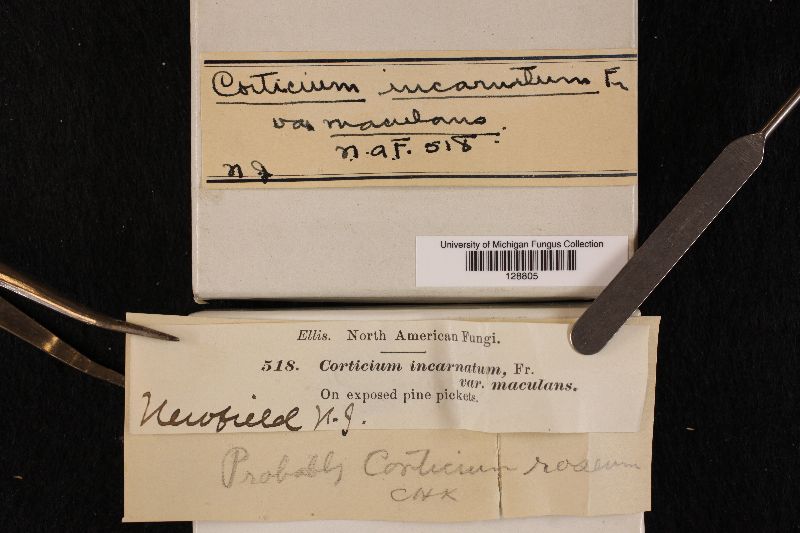 Corticium incarnatum Fr
var maculans.
N.A.F. 518
N J
University of Michigan Fungus Collection
128805
Ellis. North American Fungi.
518. Corticium incarnatum, Fr.
var. maculans.
On exposed pine pickets.
Newfield N.J.
Probably Corticium roseum
CHK